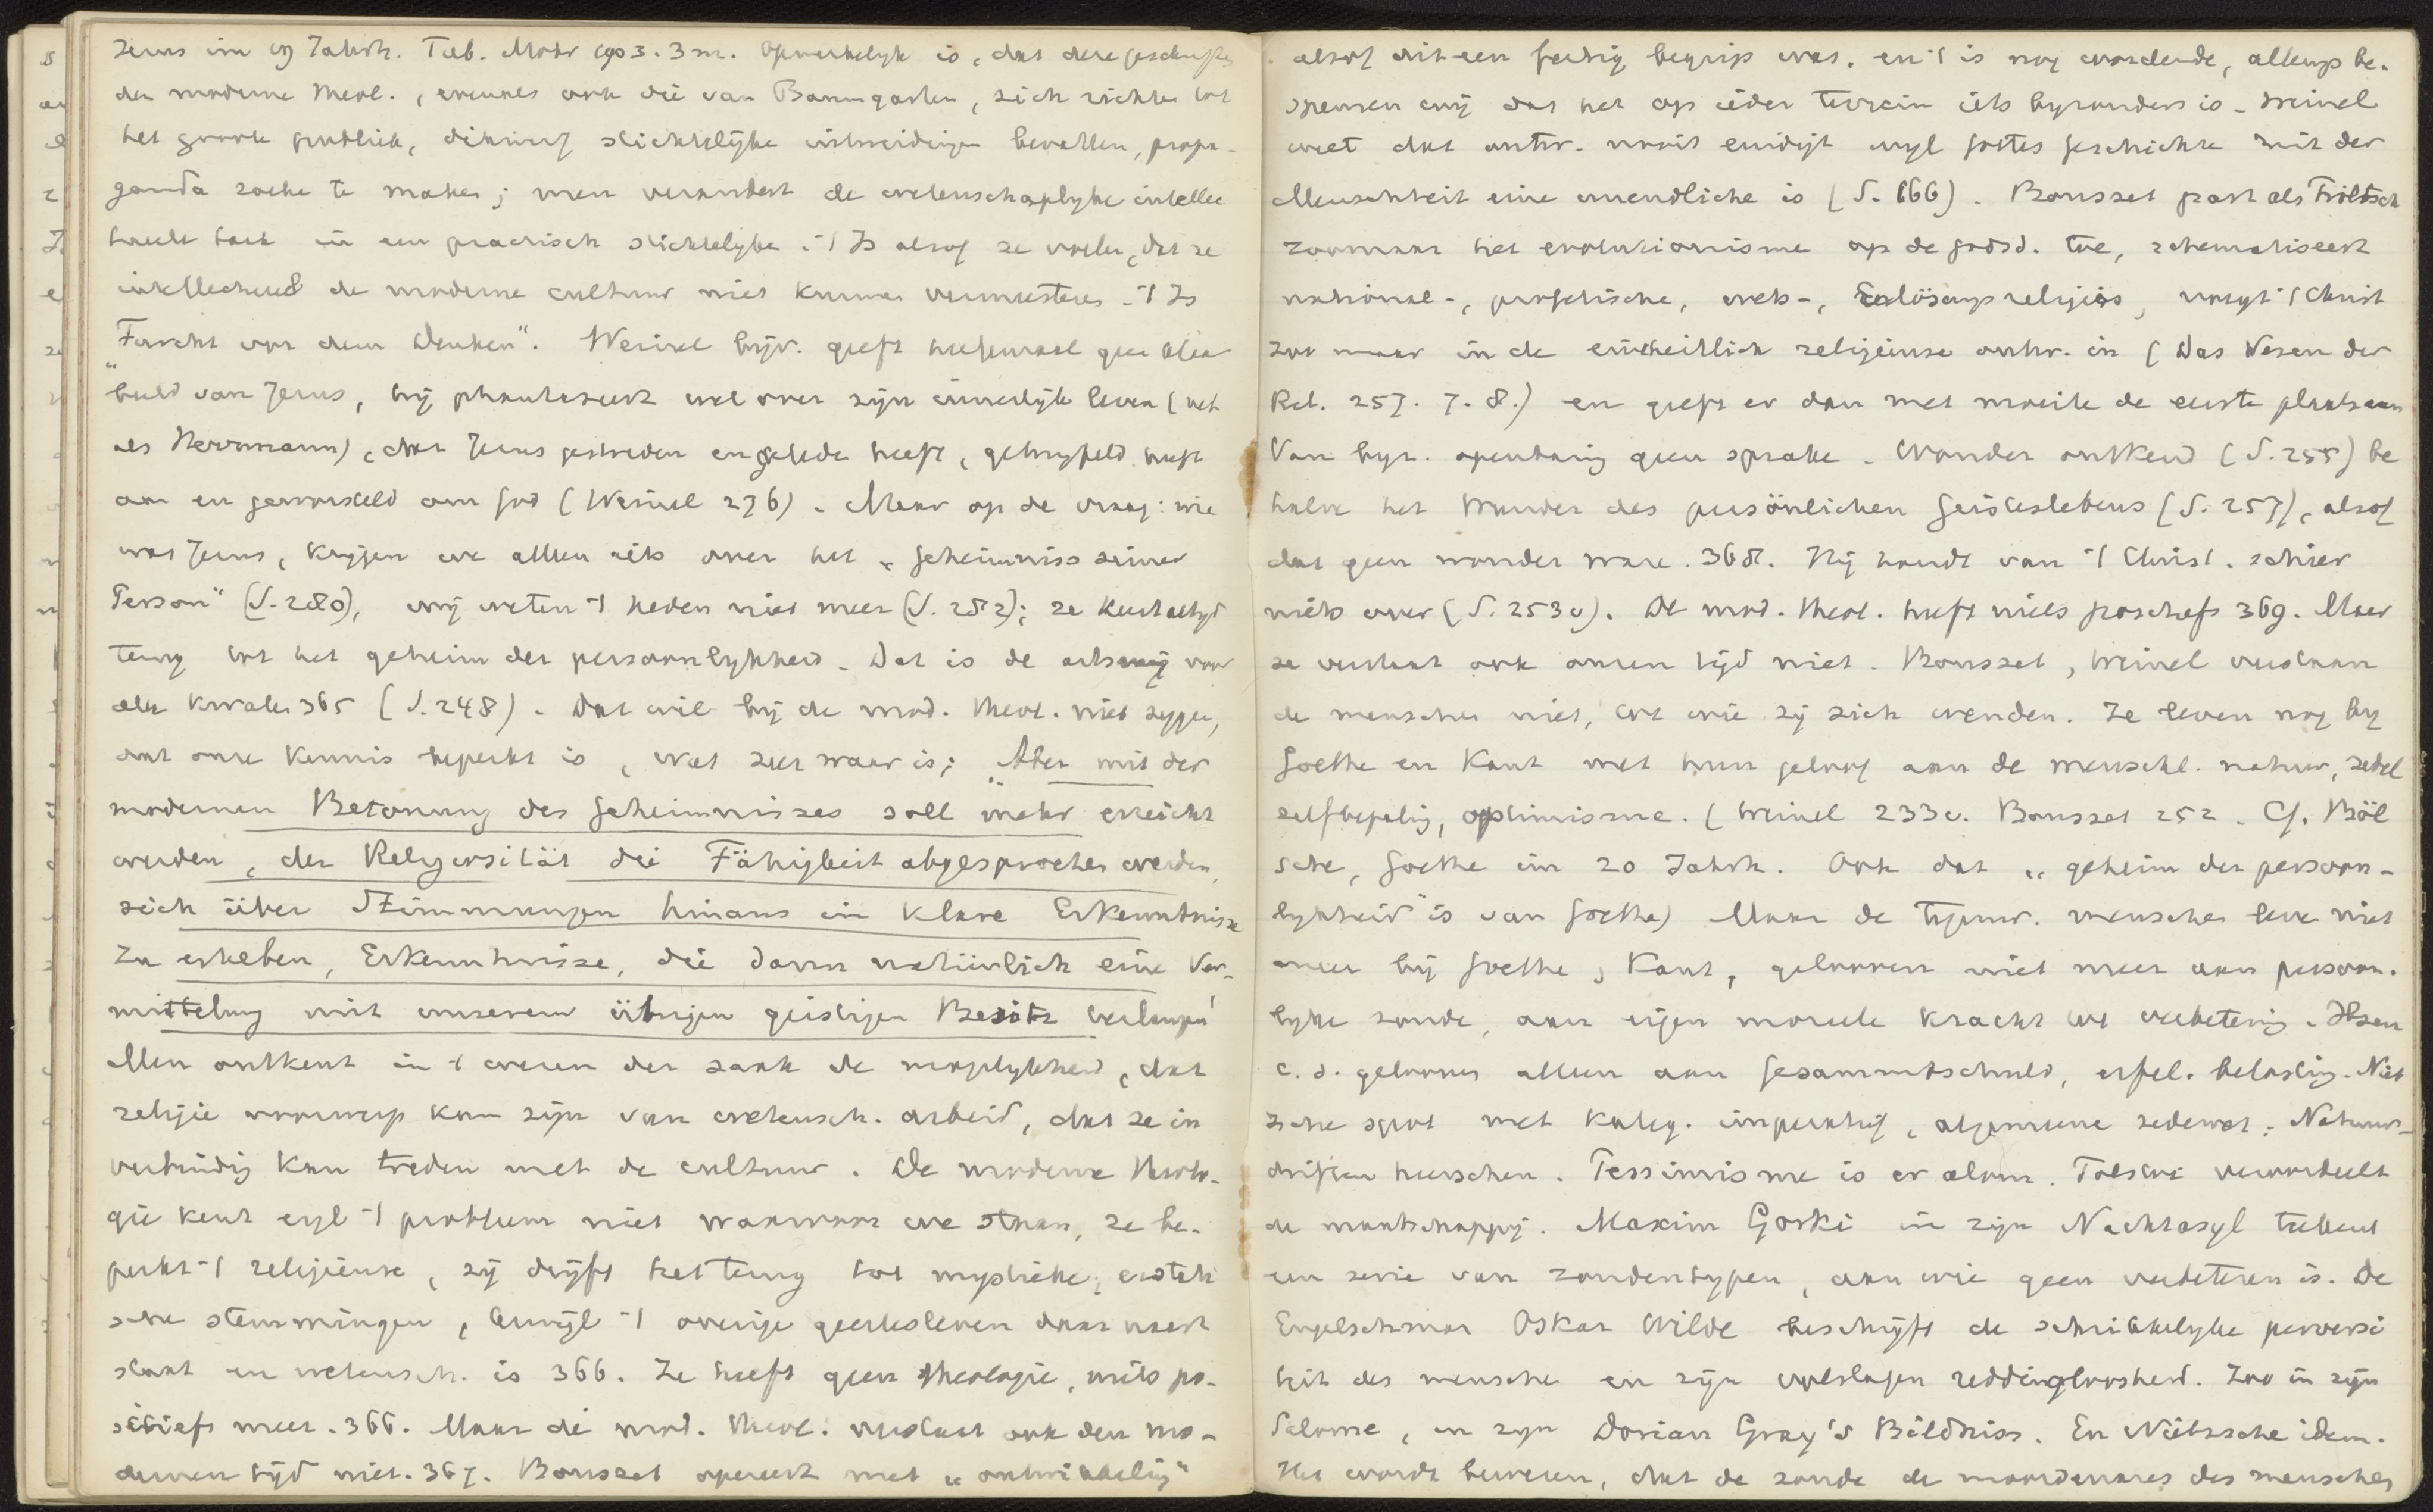 Jesus im 19 Jahrh. Tüb. Mohr 1903. 3 M. Opmerkelijk is, dat deze geschriften
der moderne theol., evenals ook die van Baumgarten, zich richten tot
het groote publiek, dikwerf stichtelijke uitweidingen bevatten, propa-
ganda zoeke te maken; men verandert de wetenschaplijke intellec
tueele taak in een practisch stichtelijke. 't Is alsof ze voelen, dat ze
intellectueel de moderne cultuur niet kunnen vermeesteren. 't Is
„Furcht vor dem Denken". Weinel bijv. geeft heelemaal geen
beeld van Jezus, hij phantaseert wel over zijn innerlijk leven (net
als Herrmann), dat Jezus gestreden en geleden heeft, getwijfeld heeft
aan en geworsteld om God (Weinel 276). Maar op de vraag: wie
was Jezus, krijgen we alleen iets over het „Geheimniss seiner
Person" (S. 280), wij weten 't heden niet meer (S. 282); ze keert altijd
terug tot het geheim der persoonlijkheid. Dat is de artsenij voor
alle kwalen 365 (S. 248). Dat wil bij de mod. theol. niet zeggen,
dat onze kennis beperkt is, wat zeer waar is; „Aber mit der
modernen Betonung des Geheimnisses soll mehr erreicht
werden, der Religiosität die Fähigkeit abgesprochen werden,
sich über Stimmungen hinaus in klare Erkenntnisse
zu erheben, Erkenntnisse, die dann natürlich eine Ver-
mittelung mit unserem übrigen geistigen Besitz verlangen"
Men ontkent in 't wezen der zaak de mogelijkheid, dat
religie voorwerp kan zijn van wetensch. arbeid, dat ze in
verbinding kan treden met de cultuur. De moderne theolo-
gie kent eigl 't probleem niet waarvoor we staan, ze be-
perkt 't religieuse, zij drijft het terug tot mystieke, extati
sche stemmingen, terwijl 't overige geestesleven daar naast
staat en wetensch. is 366. Ze heeft geen theologie, niets po-
sitiefs meer. 366. Maar de mod. theol. verstaat ook den mo-
dernen tijd niet. 367. Bousset opereert met „ontwikkeling"
alsof dit een fertig begrip was, en 't is nog wordende, allengs be-
speuren wij dat het op ieder terrein iets bijzonders is. Weinel
weet dat ontw. nooit eindigt wijl Gottes Geschichte mit der
Menschheit eine unendliche is (S. 166). Bousset past als Tröltsch
zoomaar het evolutionisme op de godsd. toe, schematiseert
national-, profetische, wets-, Erlösungsreligies, voegt 't Christ
zoo maar in de einheitlich religieuse ontw. in (Das Wesen der
Rel. 257. 7. 8.) en geeft er dan met moeite de eerste plaats aan
Van bijz. openbaring geen sprake. Wonder ontkend (S. 255) be
halve het Wunder des persönlichen Geisteslebens (S. 257), alsof
dat geen wonder ware. 368. Hij houdt van 't Christ. schier
niets over (S. 253 v). De mod. theol. heeft niets positiefs 369. Maar
ze verstaat ook onzen tijd niet. Bousset, Weinel verstaan
de menschen niet, tot wie zij zich wenden. Ze leven nog bij
Goethe en Kant met hun geloof aan de menschl. natuur, zedel
zelfbepaling, optimisme. (Weinel 233 v. Bousset 252. Cf. Böl
sche, Goethe im 20 Jahrh. Ook dat „geheim der persoon-
lijkheid" is van Goethe) Maar de tegenw. menschen leven niet
meer bij Goethe, Kant, gelooven niet meer aan persoon-
lijke zonde, aan eigen moreele kracht tot verbetering. Ibsen
c.s. gelooven alleen aan Gesammtschuld, erfel. belasting. Niet
zsche spot met kateg. imperatief, algemeene zedewet; Natuur-
driften heerschen. Pessimisme is er alom. Tolstoi veroordeelt
de maatschappij. Maxim Gorki in zijn Nachtasyl teekent
een serie van zondentypen, aan wie geen verbeteren is. De
Engelschman Oskar Wilde beschrijft de schrikkelijke perversi
teit des menschen en zijn volslagen reddingloosheid. Zoo in zijn
Salome, in zijn Dorian Gray's Bildniss. En Nietzsche idem.
Het wordt bewezen, dat de zonde de moordenares des menschen